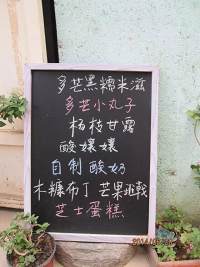 多芒黑糯米滋
多芒小丸子
杨枝甘露
酸孃孃
自制酸奶
木糠布丁 芒果班戟
芝士蛋糕